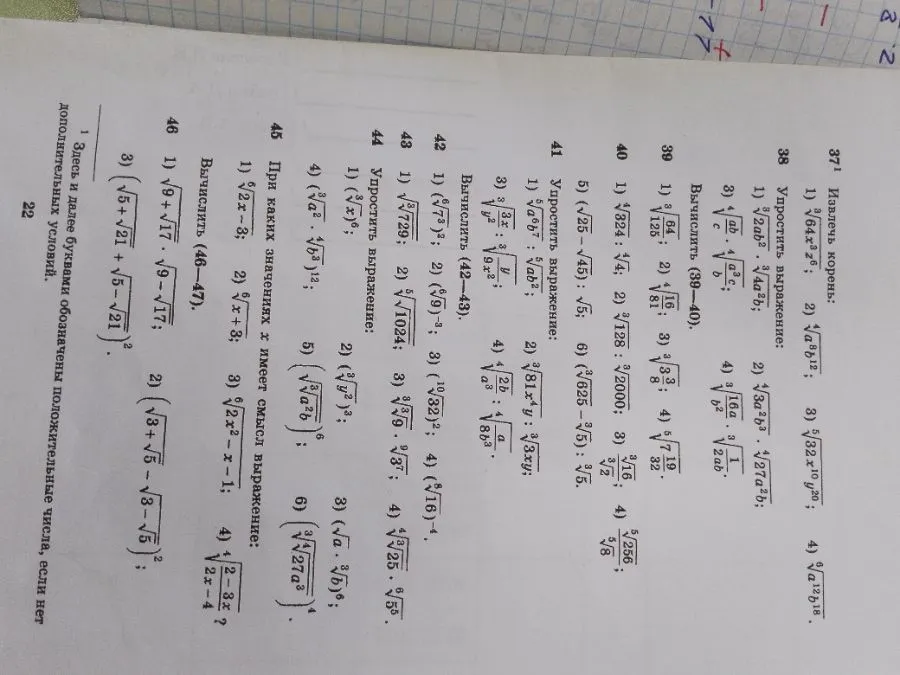 37¹ Извлечь корень:
1) ∛(64x³z⁶); 2) ∜(a⁸b¹²); 3) ⁵√(32x¹⁰y²⁰); 4) ⁶√(a¹²b¹⁸).
38 Упростить выражение:
1) ∛(2ab²) · ∛(4a²b); 2) ∜(3a²b³) · ∜(27a²b);
3) ∜(ab/c) · ∜(a³c/b); 4) ∛(16a/b²) · ∛(1/(2ab)).
Вычислить (39—40).
39 1) ∛(64/125); 2) ∜(16/81); 3) ∛(3 3/8); 4) ⁵√(7 19/32).
40 1) ∜324 : ∜4; 2) ∛128 : ∛2000; 3) ∛16/∛2; 4) ⁵√256/⁵√8;
5) (√25 − √45) : √5; 6) (∛625 − ∛5) : ∛5.
41 Упростить выражение:
1) ⁵√(a⁶b⁷) : ⁵√(ab²); 2) ∛(81x⁴y) : ∛(3xy);
3) ∛(3x/y²) : ∛(y/(9x²)); 4) ∜(2b/a³) : ∜(a/(8b³)).
Вычислить (42—43).
42 1) (⁶√(7³))²; 2) (⁶√9)⁻³; 3) (¹⁰√32)²; 4) (⁸√16)⁻⁴.
43 1) √(∛729); 2) ⁵√(√1024); 3) ∛(∛9) · ⁹√(3⁷); 4) ∜(∛25) · ⁶√(5⁵).
44 Упростить выражение:
1) (∛x)⁶; 2) (∛(y²))³; 3) (√a · ∛b)⁶;
4) (∛(a²) · ∜(b³))¹²; 5) (√(∛(a²b)))⁶; 6) (∛(∜(27a³)))⁴.
45 При каких значениях x имеет смысл выражение:
1) ⁶√(2x − 3); 2) ⁶√(x + 3); 3) ⁶√(2x² − x − 1); 4) ∜((2 − 3x)/(2x − 4))?
Вычислить (46—47).
46 1) √(9 + √17) · √(9 − √17); 2) (√(3 + √5) − √(3 − √5))²;
3) (√(5 + √21) + √(5 − √21))².
¹ Здесь и далее буквами обозначены положительные числа, если нет
дополнительных условий.
22